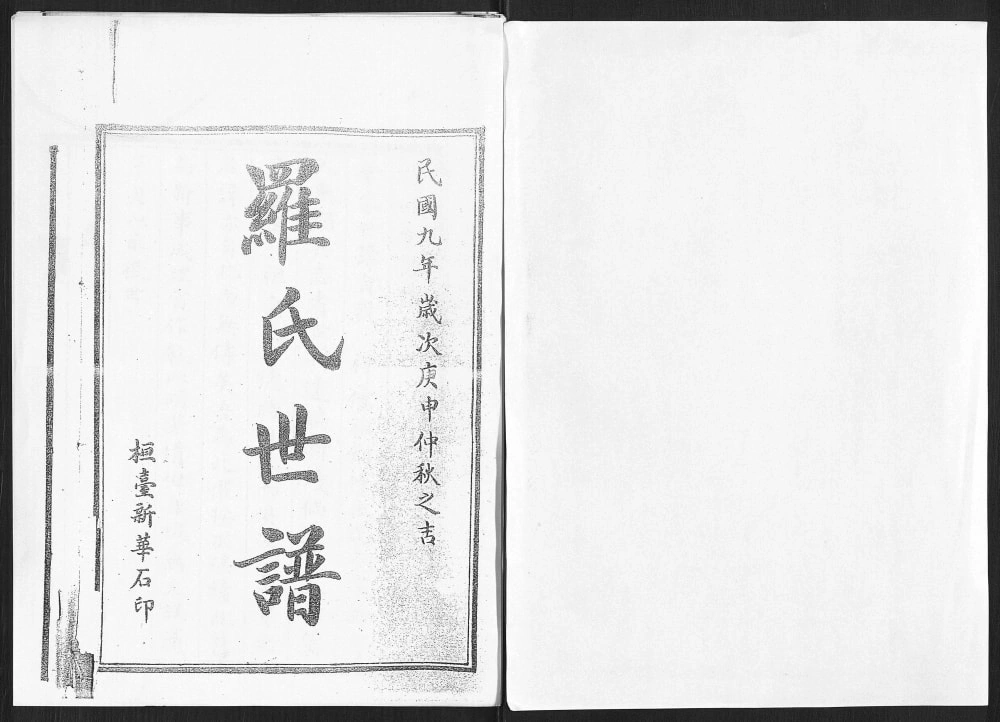 民國九年歲次庚申仲秋之吉
羅氏世譜
桓臺新華石印